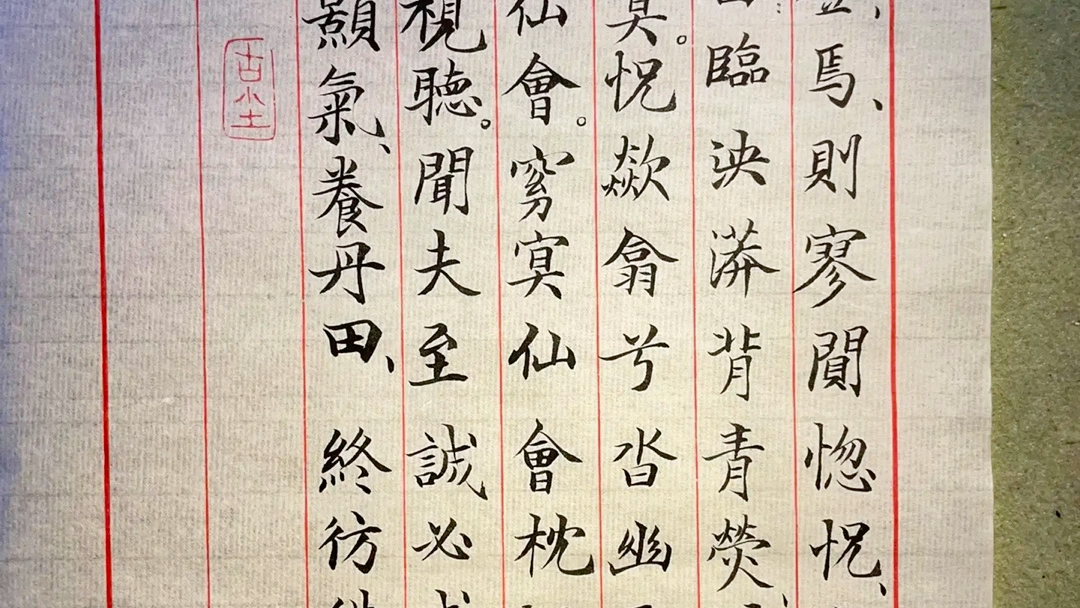 焉、則寥閴惚怳、
臨泱漭背青熒
冥。怳歘翕兮沓幽
仙會。窈冥仙會枕
視聽。聞夫至誠必
顥氣、養丹田、終彷
古尘